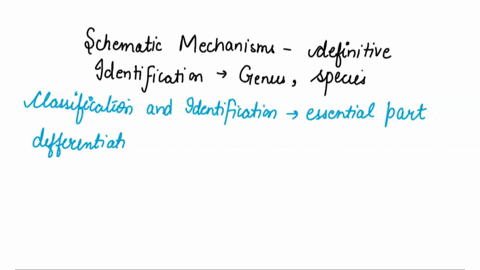 Schematic Mechanisms - definitive
Identification → Genus, species
Classification and Identification → essential part
differentiati